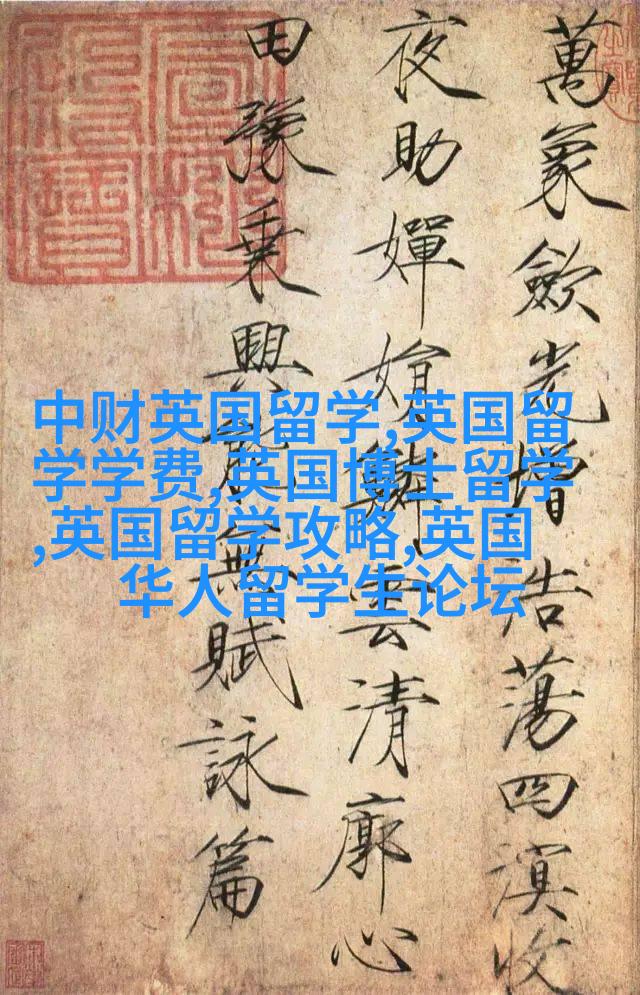 萬象歛光增浩蕩四溟收
夜助嬋娟鱗雲清廓心
田豫乗興能無賦詠篇
中财英国留学,英国留
学学费,英国博士留学
,英国留学攻略,英国
华人留学生论坛